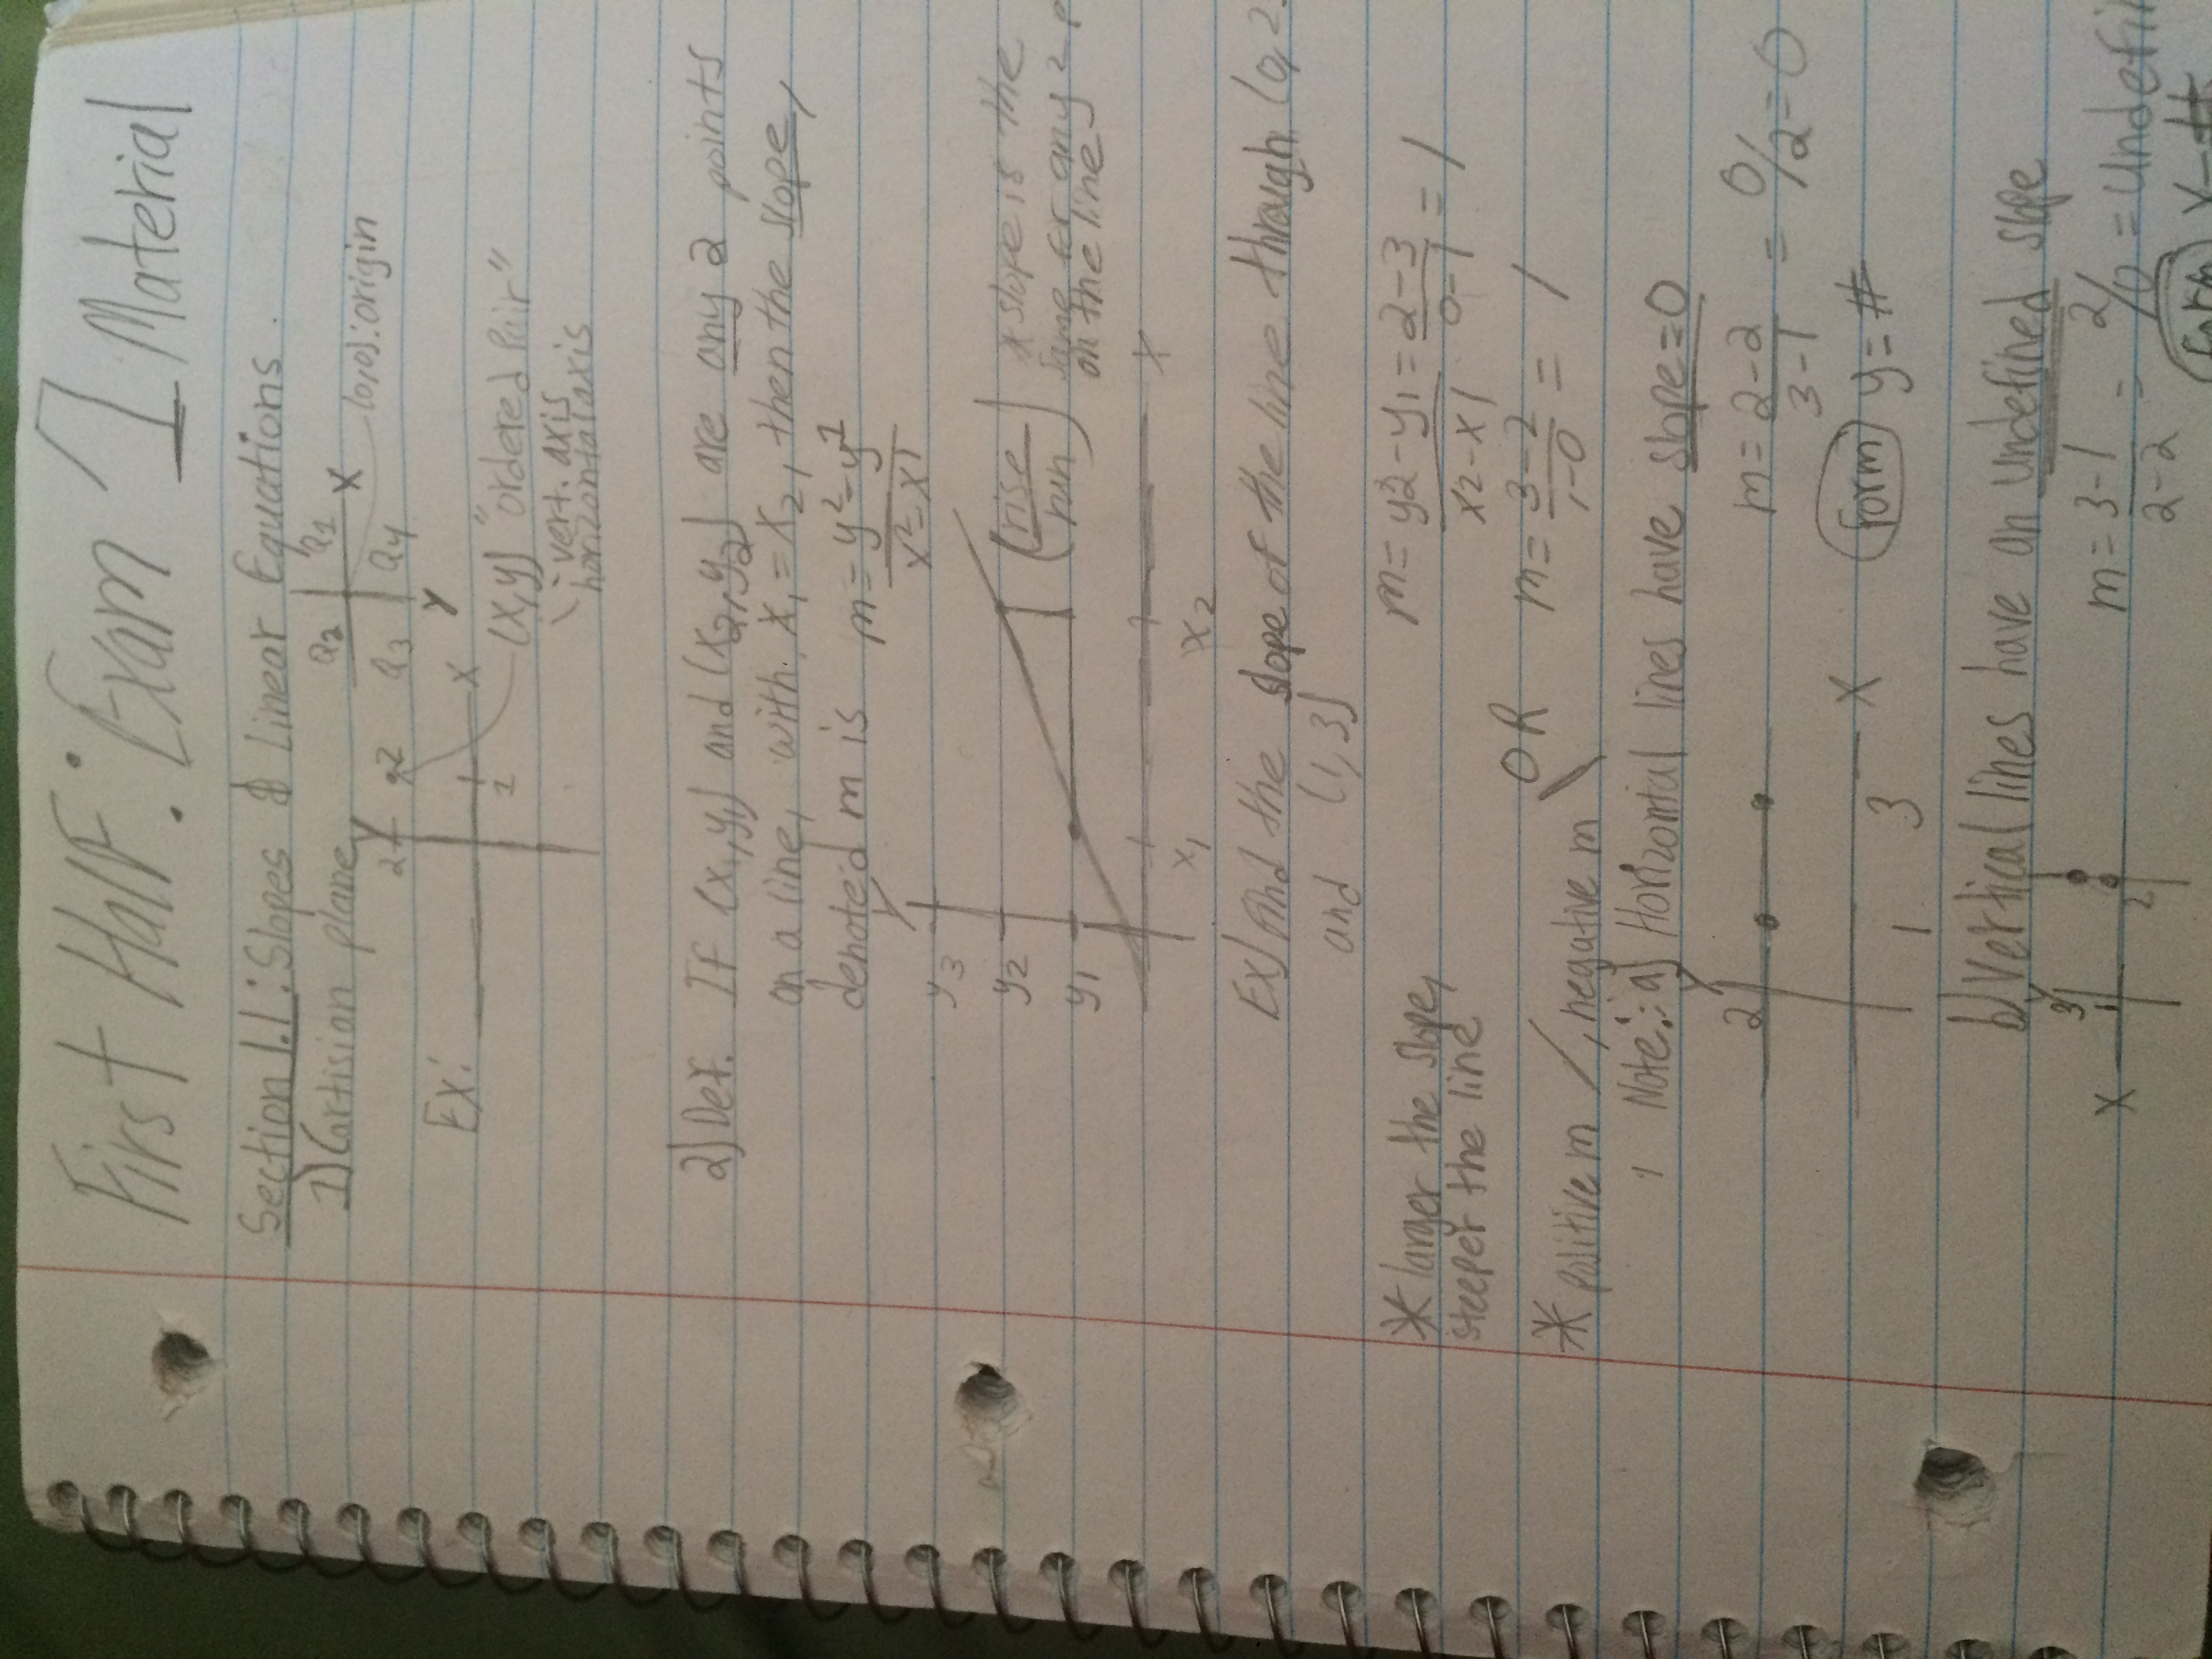 First Half: Exam 1 Material
Section 1.1: Slopes & Linear Equations
1) Cartision plane
Q2 Q1 X
(0,0): origin
Q3 Q4
Y
Ex: 2 Y X
2
(x,y) "ordered pair"
vert. axis
horizontal axis
2) Def. If (x1,y1) and (x2,y2) are any 2 points
on a line, with x1 = x2, then the slope,
denoted m is m = y2-y1
x2-x1
y
y3
y2 (rise
run) * slope is the
same for any 2 p
on the line
y1
x
x1 x2
Ex) find the slope of the line through (0,2
and (1,3)
m = y2-y1 = 2-3 = 1
x2-x1 0-1
* larger the slope,
steeper the line
OR m = 3-2 = 1
1-0
* positive m /, negative m \
Note: a) Horizontal lines have slope=0
y
2
m = 2-2 = 0/2=0
3-1
x
1 3
form y=#
b) Vertical lines have an undefined slope
y
3
1
m = 3-1 - 2/0 = undefin
2-2
x 2
form x=#